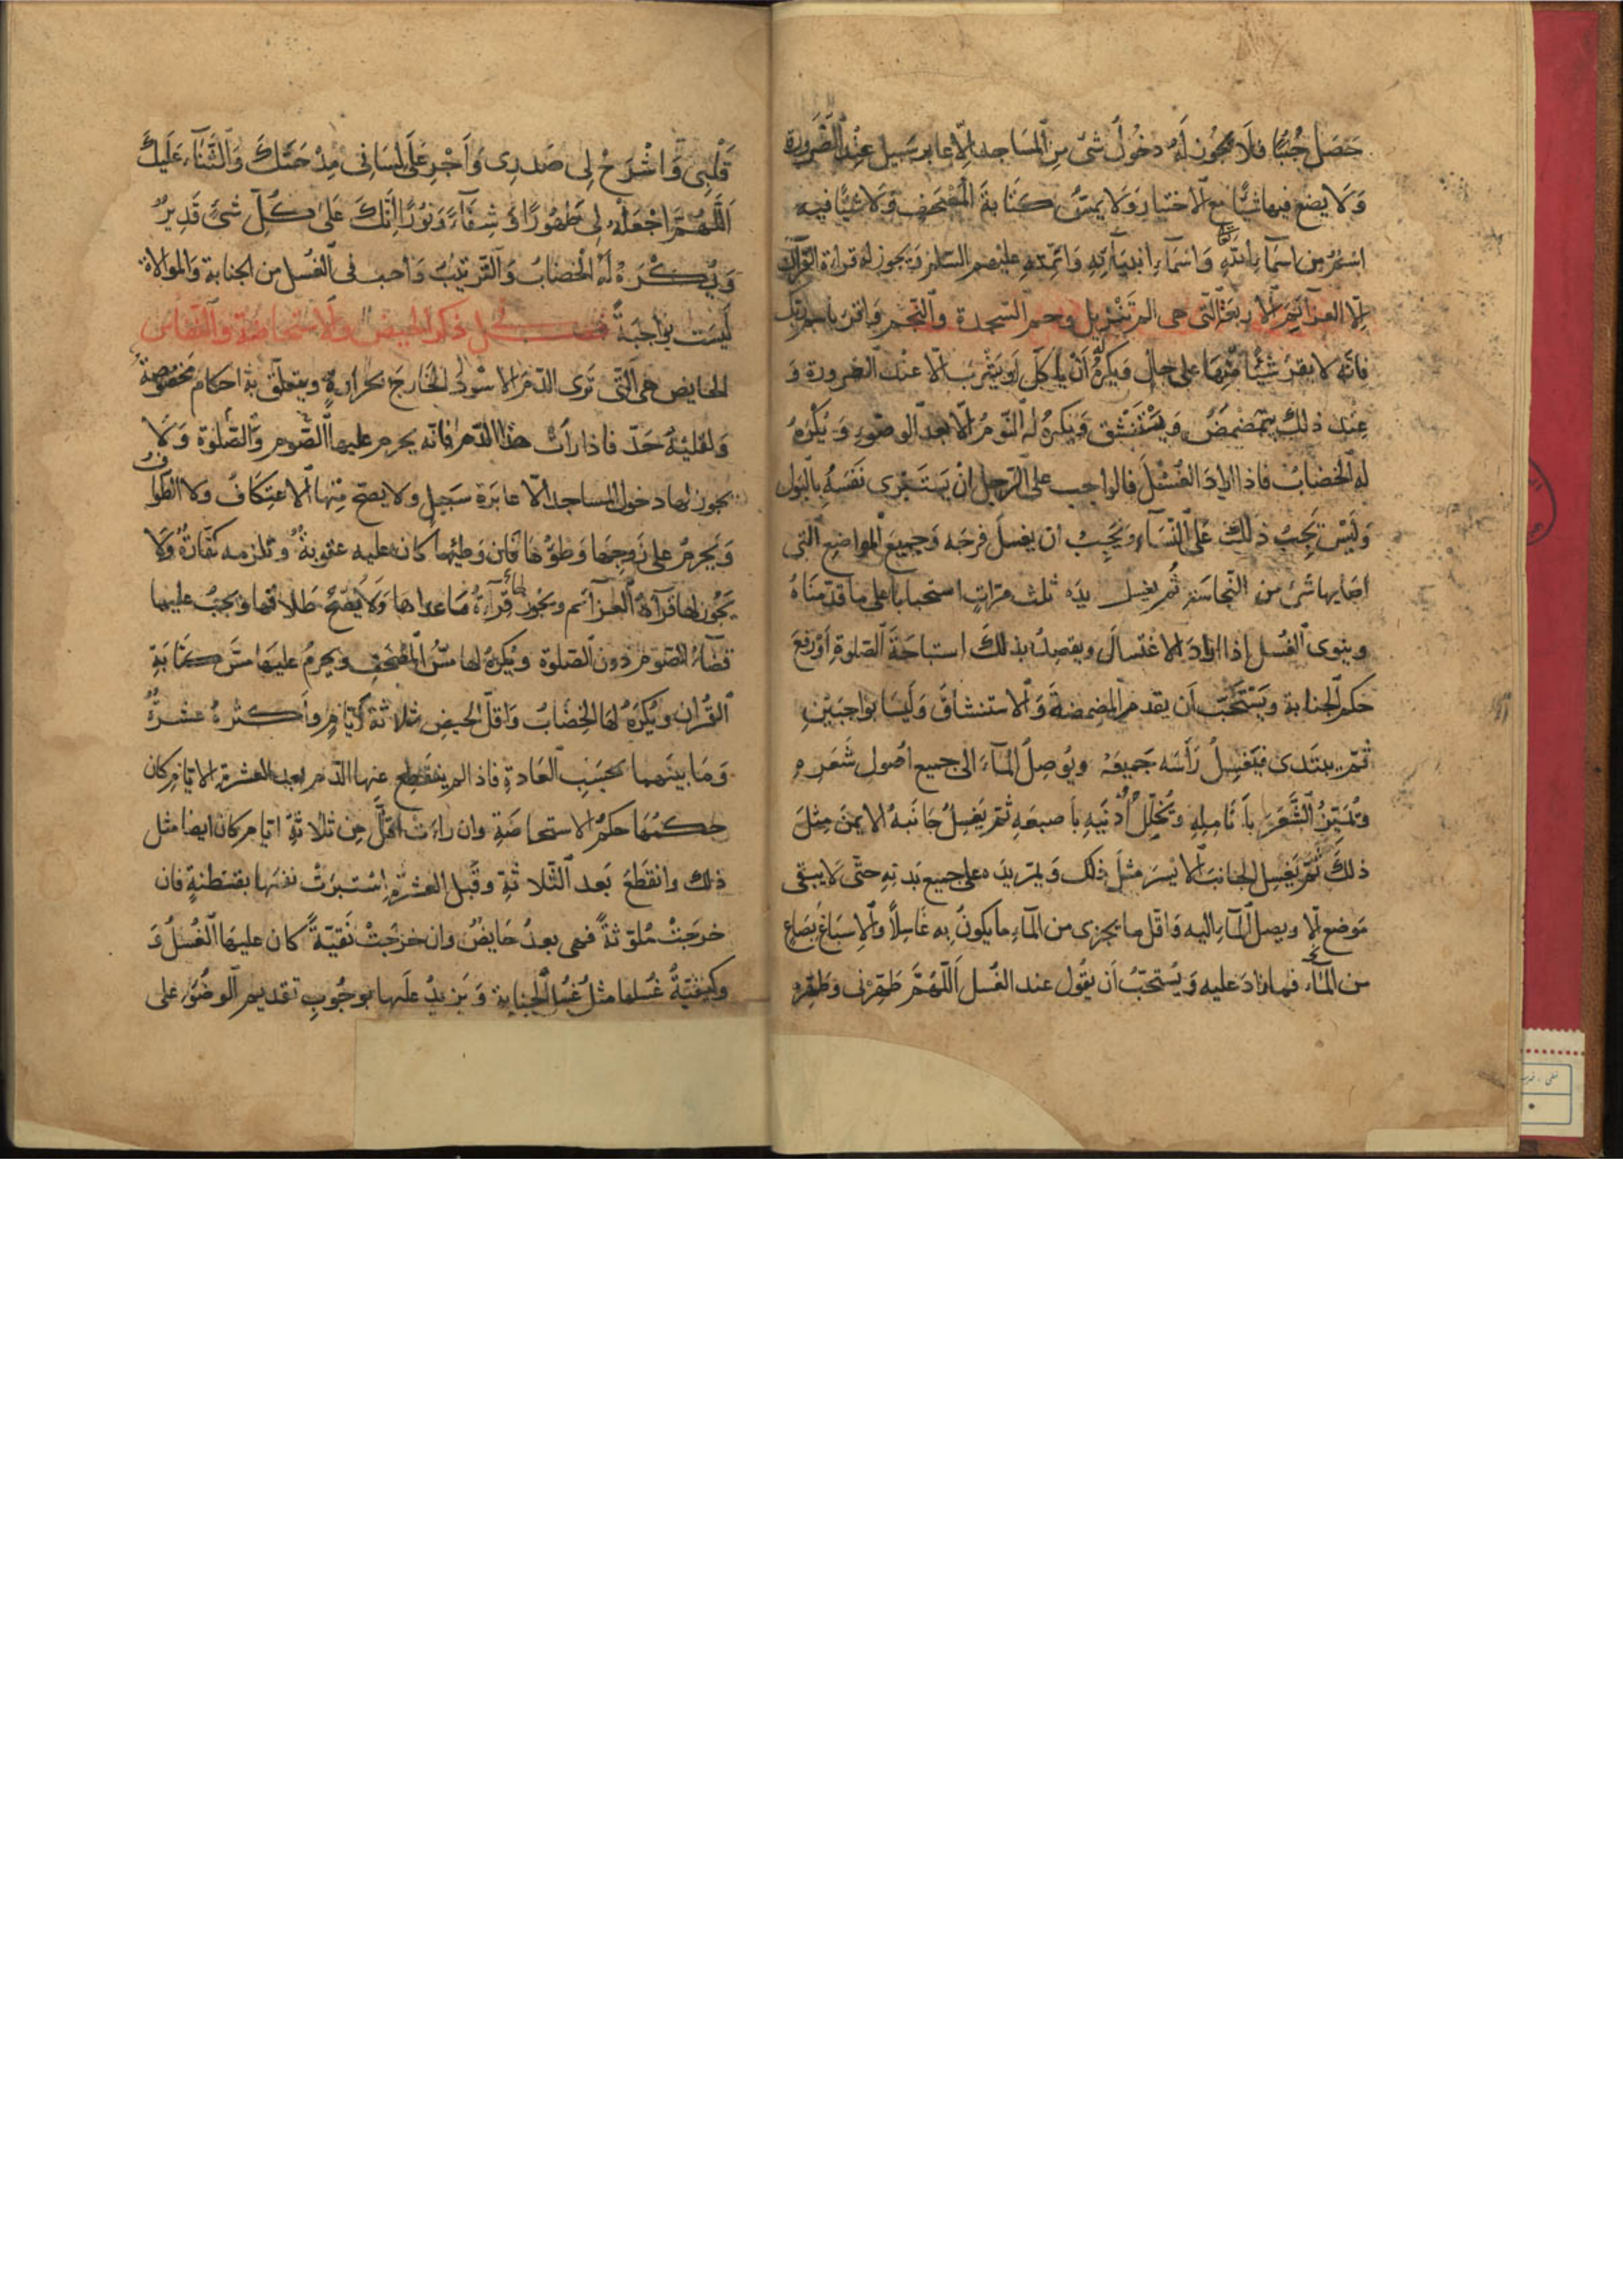 حَصَلَ جُنُبًا فلَا يجُوز لَهُ دخُولُ شئ مِن المسَاجد اِلّا عابر سَبيل عِنْد الضَّرورة
وَلَا يضع فيها شيًا مع الاختيار وَلَا يمسّ كتابة المصْحَف وَلَا شيًا فيه
اسْمٌ من اسمآء الله وَاسمآء انبيآئه وَائمّته عليهم السّلم وَيجوز له قراءة القرآن
اِلّا العزآئم الاربعة الّتى هى الم تَنْزيل وحم السّجدة والنّجم وَاقرَء باسم ربّك
فانّه لا يقرَء شيئًا مِنْهَا على حالٍ وَيكرَهُ اَنْ ياكل اَو يشْرَب الّا عنْد الضرورة وَ
عِنْد ذلكَ يتمضمضُ وَيَسْتَنْشق وَيكرهُ له النّومُ الّا بعد الوضوء وَيُكْرَهُ
له الخضابُ فاذا ارادَ الغُسْلَ فالواجب على الرّجل انْ يَسْتَبْرى نَفسَهُ بِالبَول
وَلَيْسَ يَجِبُ ذلكَ عَلى النّسَآء وَيَجِبُ ان يغسل فرجَه وَجميعَ المواضِع الّتى
اصَابها شَئ من النّجاسَة ثُمّ يغسل يدَه ثلث مرّاتٍ استحبابا على ما قدّمنَاهُ
وينوى الغُسل اِذا ارادَ الاغتسالَ ويقصِدُ بذلكَ استباحَةَ الصّلوةِ اَوْ رفعَ
حكم الجنابة ويَسْتَحَبّ أن يقدم المضمضةَ وَالاستنشاقَ وَلَيسَا بواجبَيْنِ
ثمّ يبتَدى فيَغْسِلُ رَأسَه جَميعَهُ ويُوصِلُ المآءَ الى جميع اصُول شَعَرِهِ
وَيُميّزُ الشَّعَرَ بِأَنَامِلِهِ وَيُخَلّلُ اُذنَيْهِ بِأصبعَهِ ثمّ يَغْسِلُ جَانبهُ الايمنَ مِثْلَ
ذلكَ ثُمّ يَغْسِل الجانبَ الايْسَرَ مثلَ ذلك وَيمرّ يدَه على جميع بَدنِهِ حتّى لا يبقى
مَوضع اِلّا ويصل المآء اليه وَاقلّ ما يجزى من المآء ما يكونُ بِه غَاسِلاً وَالاِسبَاغ بصَاعٍ
من المآء فما زادَ عليه وَيُستحَبّ أن يقُول عند الغُسل اَللّهُمَّ طَهّرنى وطَهّر
قَلْبِى وَاشْرَحْ لِى صَدرِى وَأَجْرِ عَلَى لِسَانِى مِدْحَتكَ وَالثَّنآءَ عَلَيكَ
اَللّهُمَّ اجْعَلْهُ لِى طَهُورًا وَشِفآءً وَنُورًا اِنَّكَ عَلى كُلّ شئٍ قَدِيرٌ
وَيُكْرَهُ لَهُ الخضابُ وَالتّرتيبُ وَاجب فى الغُسل من الجنابة وَالموالاة
لَيسَت بواجبَةً فصل فى ذكر الحيض والاستحاضة والنّفاس
الحايض هى الّتى تَرى الدّمَ الاسْودَ الخارجَ بحرارةٍ ويتعلّق به احكام مَخصُوصَةٌ
وَلقليلهُ حَدّ فاذا رأت هذا الدّم فانّه يحرم عليها الصّوم والصّلوة وَلا
يجوز لها دخول المساجد الّا عابرَة سَبيل ولا يصحّ مِنها الاعتِكافُ ولا الطّوافُ
وَيحرمُ على زَوجِهَا وَطؤهَا فان وَطِئها كان عليه عقوبةٌ وتلزمه كفّارةٌ وَلا
يَجُوز لها قرآءةُ العزآئم ويَجُوز لها قِرآءةُ مَاعداها وَلا يَصحّ طلاقها وَيجبُ عليها
قضآءُ الصّوم دون الصّلوة ويُكرهُ لها مسُّ المصْحَفِ ويحرمُ عليهَا مَسّ كتابةِ
القُرانِ ويُكرَهُ لَها الخِضَابُ وَاقلّ الحيضِ ثلاثة أيّامٍ وأكثرهُ عشرةٌ
وَمَا بينهما بحسَبِ العَادةِ فاذا لم ينقطِع عنها الدّم بعد العشرة الايّام كان
حكمُها حكمَ الاستحاضَةِ وان رَاءَت اقلَّ مِن ثلاثةِ ايّام كان ايضا مثل
ذلك وانقطَعَ بَعد الثّلاثةِ وقَبل العشرةِ اِسْتبرَتْ نفسَها بقطنةٍ فان
خرجَتْ مُلوّثةً فهى بعدُ حَايضٌ وان خرَجَتْ نَقيّةً كان عليهَا الغُسلُ وَ
وكيفيّةُ غُسلها مثلُ غُسل الجنابةِ وَيَزيدُ علَيها بوجُوبِ تقديم الوضُوءِ على